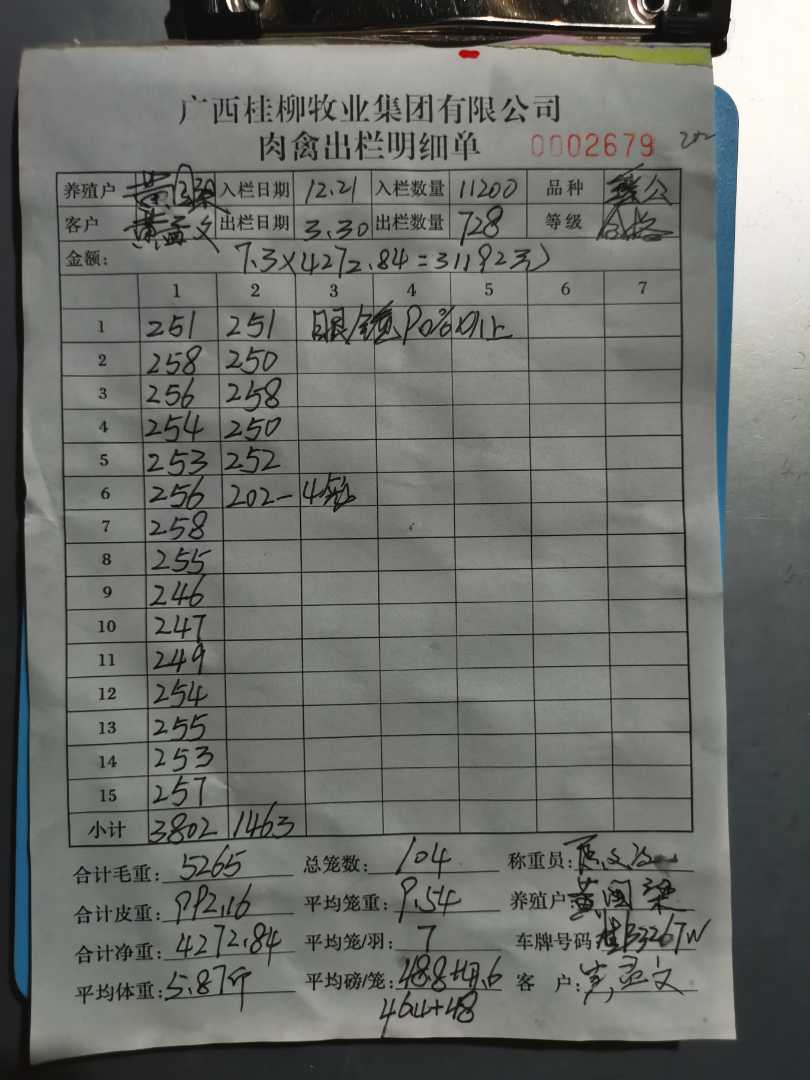 广西桂柳牧业集团有限公司
肉禽出栏明细单 0002679
养殖户 黄 梁 入栏日期 12.21 入栏数量 11200 品种 公
客户 黄孟文 出栏日期 3.30 出栏数量 728 等级 合格
金额: 7.3×4272.84=31192元
1 2 3 4 5 6 7
1 251 251 眼 90%以上
2 258 250
3 256 258
4 254 250
5 253 252
6 256 202- 4笼
7 258
8 255
9 246
10 247
11 249
12 254
13 255
14 253
15 257
小计 3802 1463
合计毛重: 5265 总笼数: 104 称重员:
合计皮重: 992.16 平均笼重: 9.54 养殖户 黄 梁
合计净重: 4272.84 平均笼/羽: 7 车牌号码 桂B3267W
平均体重: 5.87斤 平均磅/笼: 48.8+47.6 客 户: 孟文
46.4+48